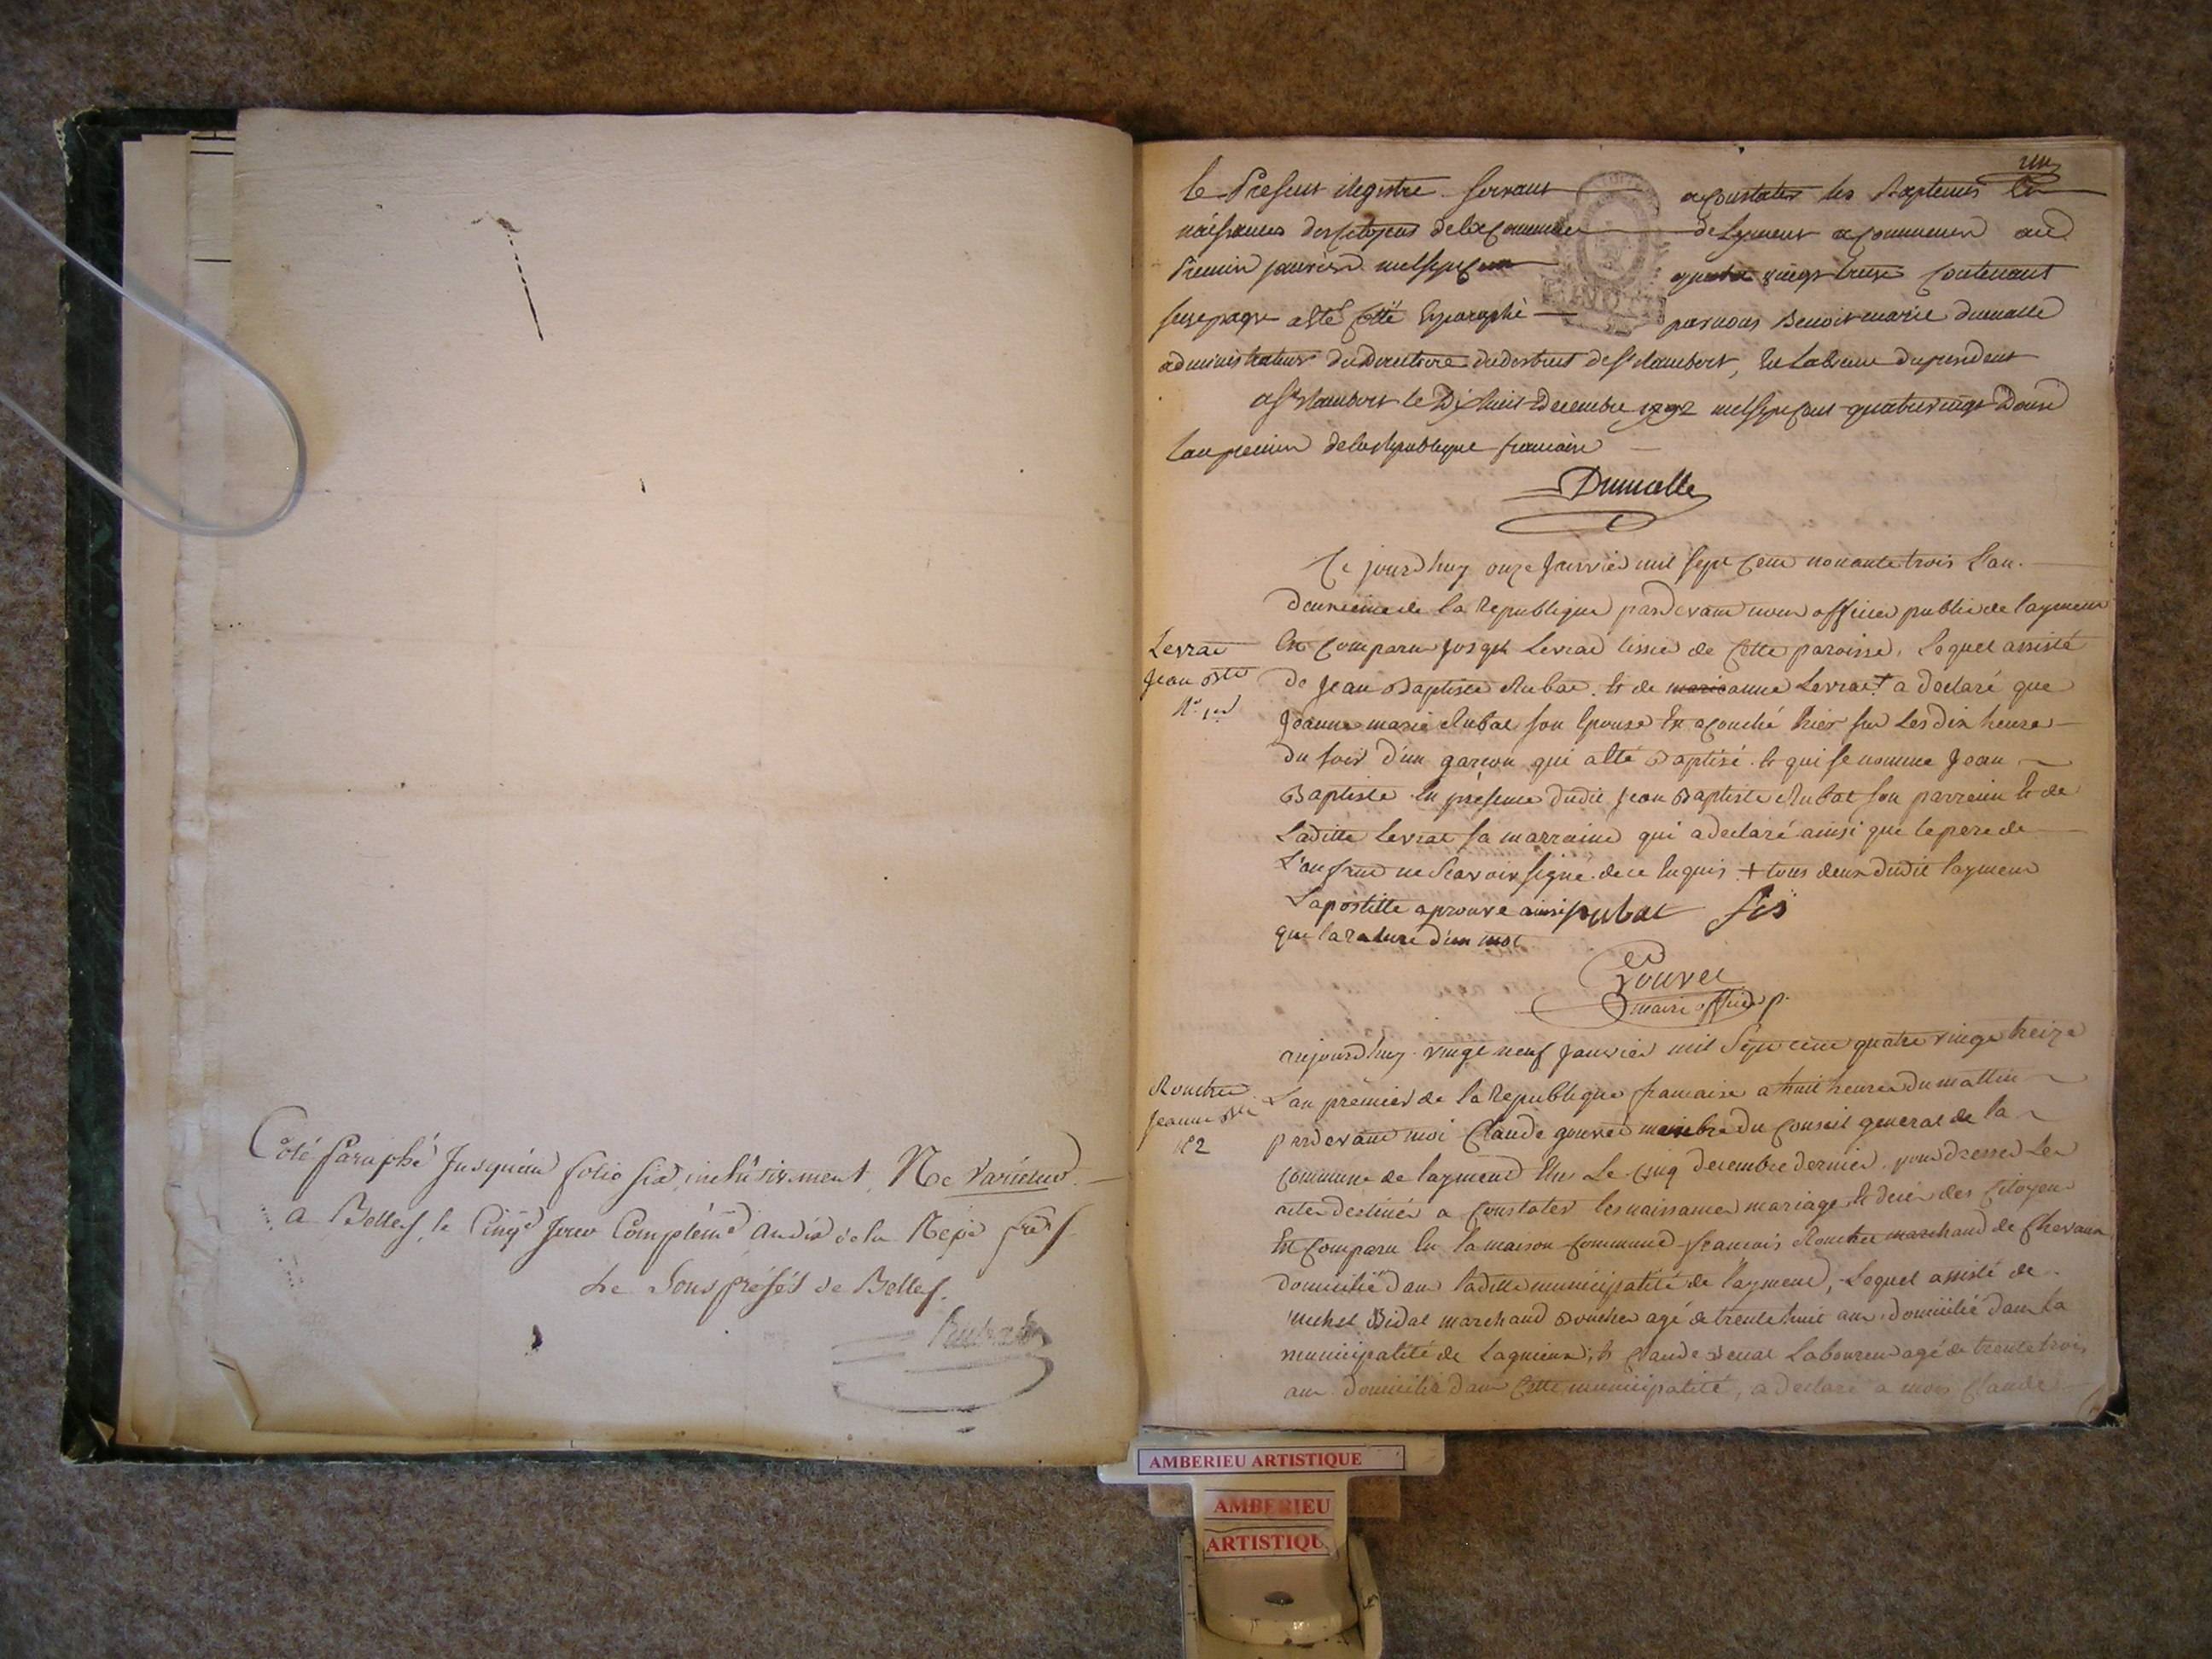 Coté Paraphé Jusqu'au folio six inclusivement Ne Varietur
a Belley, le Cinq.e Jour Complém.e an dix de la Rep.e fr.se
Le Sous préfet de Belley.
un
le Present Registre servant a Constater les Baptemes et
naissances des Citoyens de la Commune de Leyment a Commencer au
Premier janvier mil sept cent quatre vingt treize Contenant
seize pages a été Cotté et paraphé par nous Benoit marie Dumolle
administrateur du Directoire du district de St Rambert, en l'absence du président
a St Rambert le Dix huit Decembre 1792 mil sept cent quatre vingt Douze
l'an premier de la Republique francaise
Dumolle
Ce jourd huy onze Janvier mil sept cent nonante trois L'an
deuxieme de la Republique pardevant nous officier public de laymen
Est Comparu Joseph Levrat tissier de Cette paroisse, Lequel assisté
Levrat
Jean Bte
N° 1er
de Jean Baptiste Rubat. et de marie anne Levrat + a declaré que
Jeanne marie Rubat son Epouse Est acouché hier sur Les dix heures
du soir d'un garcon qui a été Baptisé. et qui se nomme Jean
Baptiste en presence dudit Jean Baptiste Rubat son parrein et de
Laditte Levrat sa marraine qui a declaré ainsi que le pere de
L'anfant ne Scavoir signe de ce Enquis + tous deux dudit laymen
Lapostille aprouvé ainsi Rubat fis
que la rature d'un mot
Gouvet
maire officier p.
aujourd huy vingt neuf Janvier mil Sept cent quatre vingt treize
Rouchet
Jeanne Bte
N° 2
L'an premier de la Republique francaise a huit heures du mattin
pardevant moi Claude gouvet membre du Conseil general de la
Commune de laymend Elus Le Cinq decembre dernier pour dresser Les
actes destinés a Constater les naissances mariage et deces des Citoyens
Est Comparu En la maison Commune francois Rouchet marchand de Chevaux
domicilié dans laditte municipalité de laymend, Lequel assisté de
michel Bidal marchand Boucher agé de trente huit ans domicilié dans la
municipalité de Lagnieux, et Claude Venat Laboureur agé de trente trois
ans domicilié dans Cette municipalité, a declaré a mois Claude
AMBERIEU ARTISTIQUE
AMBERIEU
ARTISTIQU